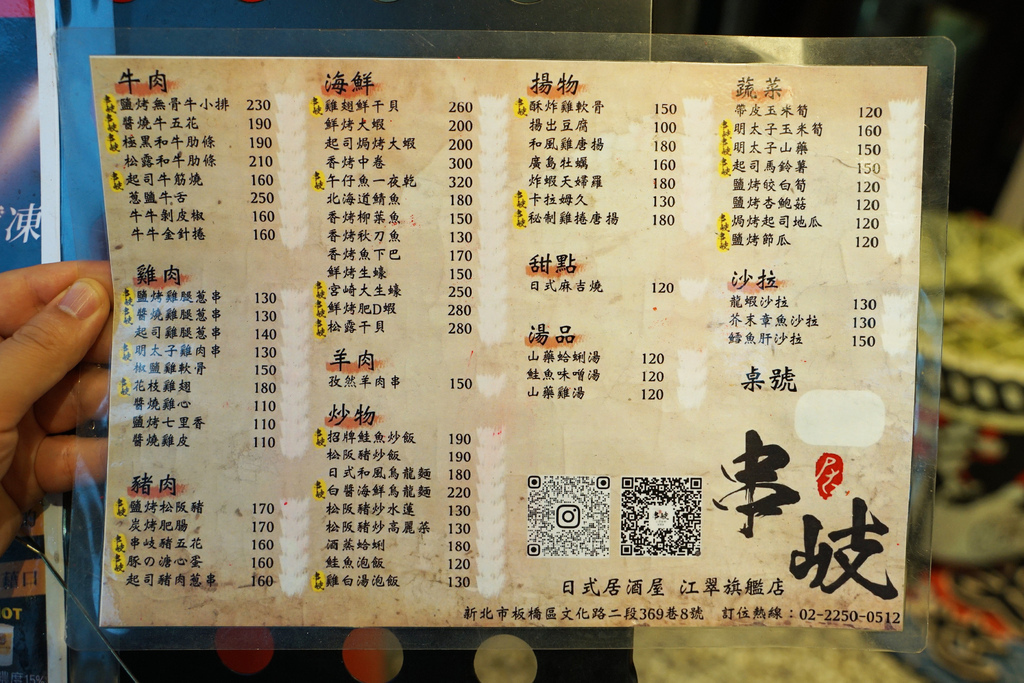 牛肉
鹽烤無骨牛小排 230
醬燒牛五花 190
極黑和牛肋條 190
松露和牛肋條 210
起司牛筋燒 160
蔥鹽牛舌 250
牛牛剝皮椒 160
牛牛金針捲 160
雞肉
鹽烤雞腿蔥串 130
醬燒雞腿蔥串 130
起司雞腿蔥串 140
明太子雞肉串 130
椒鹽雞軟骨 150
花枝雞翅 180
醬燒雞心 110
鹽烤七里香 110
醬燒雞皮 110
豬肉
鹽烤松阪豬 170
炭烤肥腸 170
串岐豬五花 160
豚の溏心蛋 160
起司豬肉蔥串 160
海鮮
雞翅鮮干貝 260
鮮烤大蝦 200
起司焗烤大蝦 200
香烤中卷 300
午仔魚一夜乾 320
北海道鯖魚 180
香烤柳葉魚 150
香烤秋刀魚 130
香烤魚下巴 170
鮮烤生蠔 150
宮崎大生蠔 250
鮮烤肥D蝦 280
松露干貝 280
羊肉
孜然羊肉串 150
炒物
招牌鮭魚炒飯 190
松阪炒飯 190
日式和風烏龍麵 180
白醬海鮮烏龍麵 220
松阪豬炒水蓮 130
松阪豬炒高麗菜 130
酒蒸蛤蜊 180
鮭魚泡飯 120
雞白湯泡飯 130
揚物
酥炸雞軟骨 150
揚出豆腐 100
和風雞唐揚 180
廣島牡蠣 160
炸蝦天婦羅 180
卡拉姆久 130
秘制雞捲唐揚 180
甜點
日式麻吉燒 120
湯品
山藥蛤蜊湯 120
鮭魚味噌湯 120
山藥雞湯 120
蔬菜
帶皮玉米筍 120
明太子玉米筍 160
明太子山藥 150
起司馬鈴薯 150
鹽烤皎白筍 120
鹽烤杏鮑菇 120
焗烤起司地瓜 120
鹽烤節瓜 120
沙拉
龍蝦沙拉 130
芥末章魚沙拉 130
鱈魚肝沙拉 150
桌號
串岐
居
日式居酒屋 江翠旗艦店
新北市板橋區文化路二段369巷8號 訂位熱線：02-2250-0512
凍